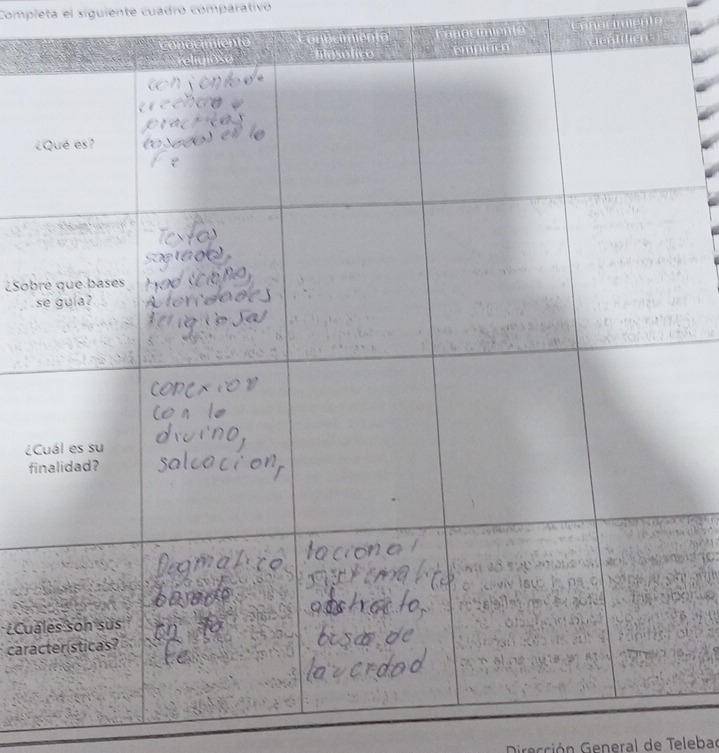 Completa el siguiente cuadro comparativo
Conocimiento religioso
Conocimiento filosófico
Conocimiento empírico
Conocimiento científico
¿Qué es?
conjonto de
creencias y
practicas
basados en lo
Fe
¿Sobre que bases
se guía?
Textos
sagrados,
tradiciones,
Autoridades
religiosas
¿Cuál es su
finalidad?
conexion
con lo
divino,
salvacion,
¿Cuáles son sus
características?
Dogmatico
basado
en la
fe
racional
sistematico
abstracto,
busca de
la verdad
Dirección General de Telebac